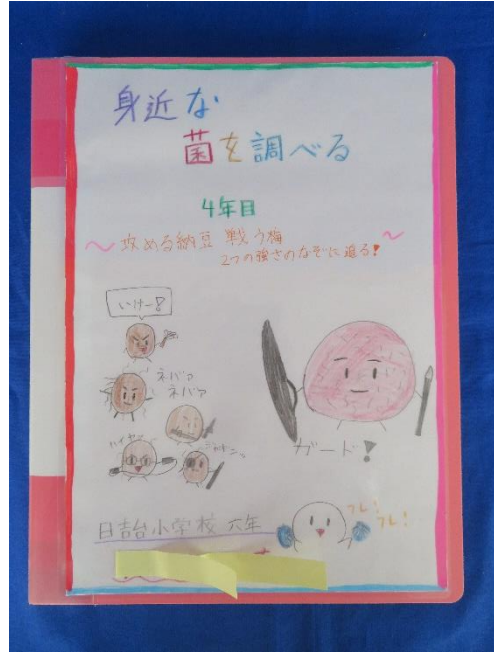 身近な
菌を調べる
4年目
～攻める納豆 戦う梅～
2つの強さのなぞに迫る!
いけー!
ネバァ
ネバァ
ガード!
フレ!
フレ!
日吉台小学校 六年